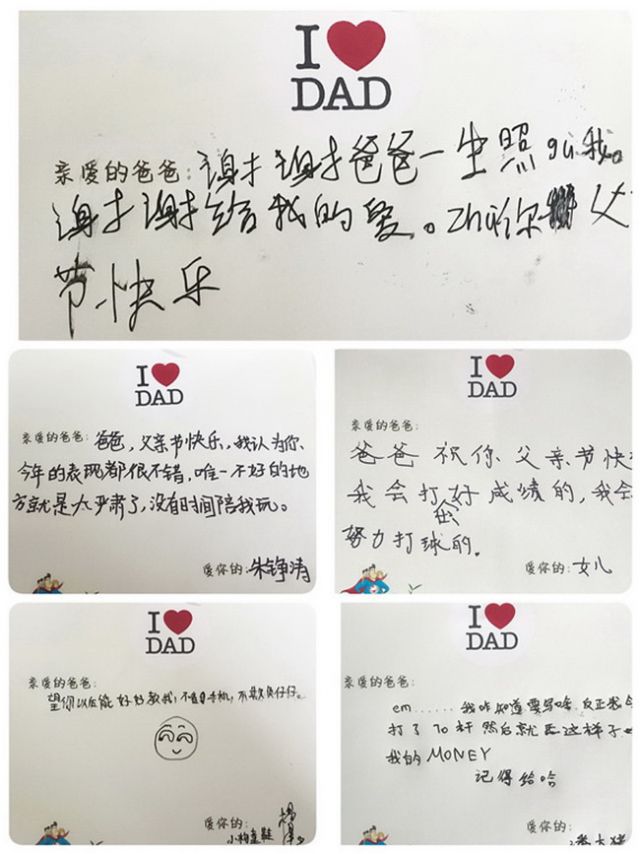 I ❤ DAD
亲爱的爸爸: 谢谢爸爸一生照gu我。
谢谢给我的爱。zhu你 父
节快乐
I ❤ DAD
亲爱的爸爸: 爸爸,父亲节快乐,我认为你
今年的表现都很不错,唯一不好的地
方就是太严肃了,没有时间陪我玩。
爱你的: 朱铮涛
I ❤ DAD
亲爱的爸爸:
爸爸祝你父亲节快
我会打好成绩的,我会
努力打球的。
爱你的: 女儿
I ❤ DAD
亲爱的爸爸:
望你以后能好好教我,不 手机,不欺负仔仔。
爱你的:
I ❤ DAD
亲爱的爸爸:
em...... 我咋知道要写啥,反正我今
打了70杆然后就 这样子
我的MONEY
记得给哈
爱你的: